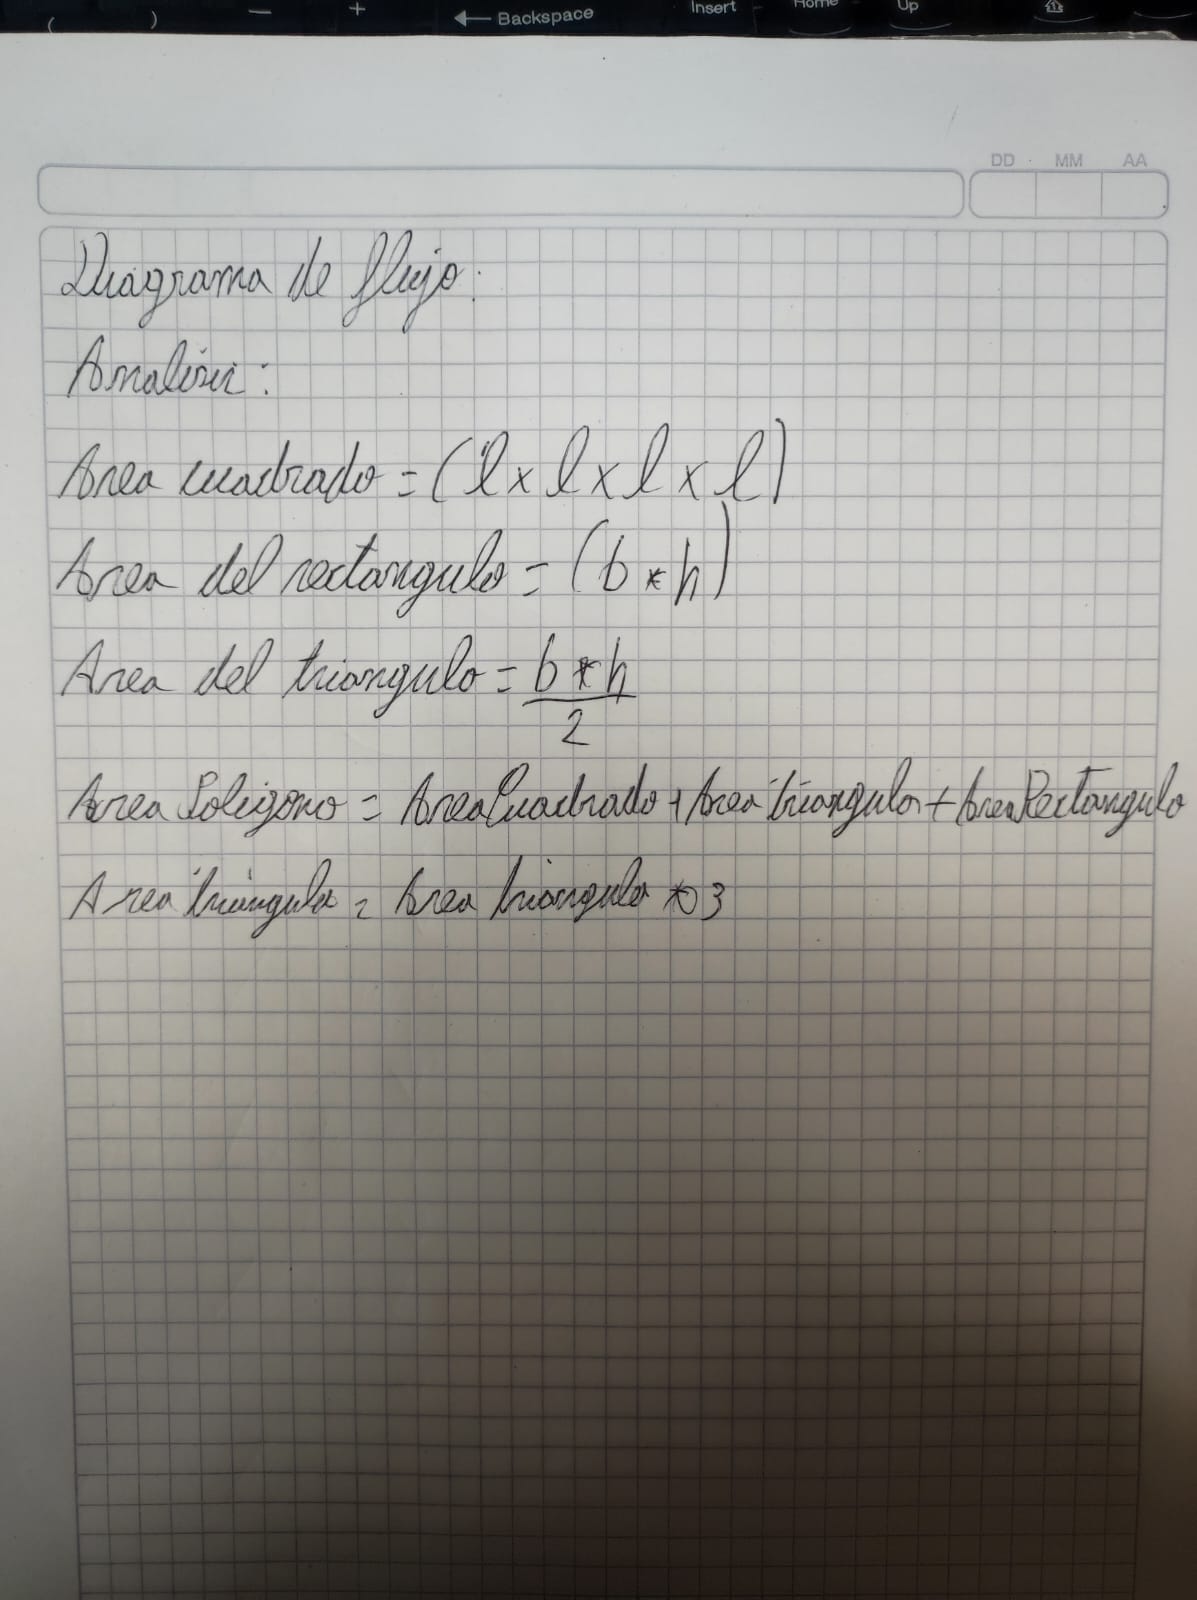 ( ) — + ← Backspace Insert Home Up
DD MM AA
Diagrama de flujo:
Analisis:
Area cuadrado = (l x l x l x l)
Area del rectangulo = (b * h)
Area del triangulo = b * h
2
Area Poligono = AreaCuadrado + Area triangulo + AreaRectangulo
Area triangulo = Area triangulo * 3